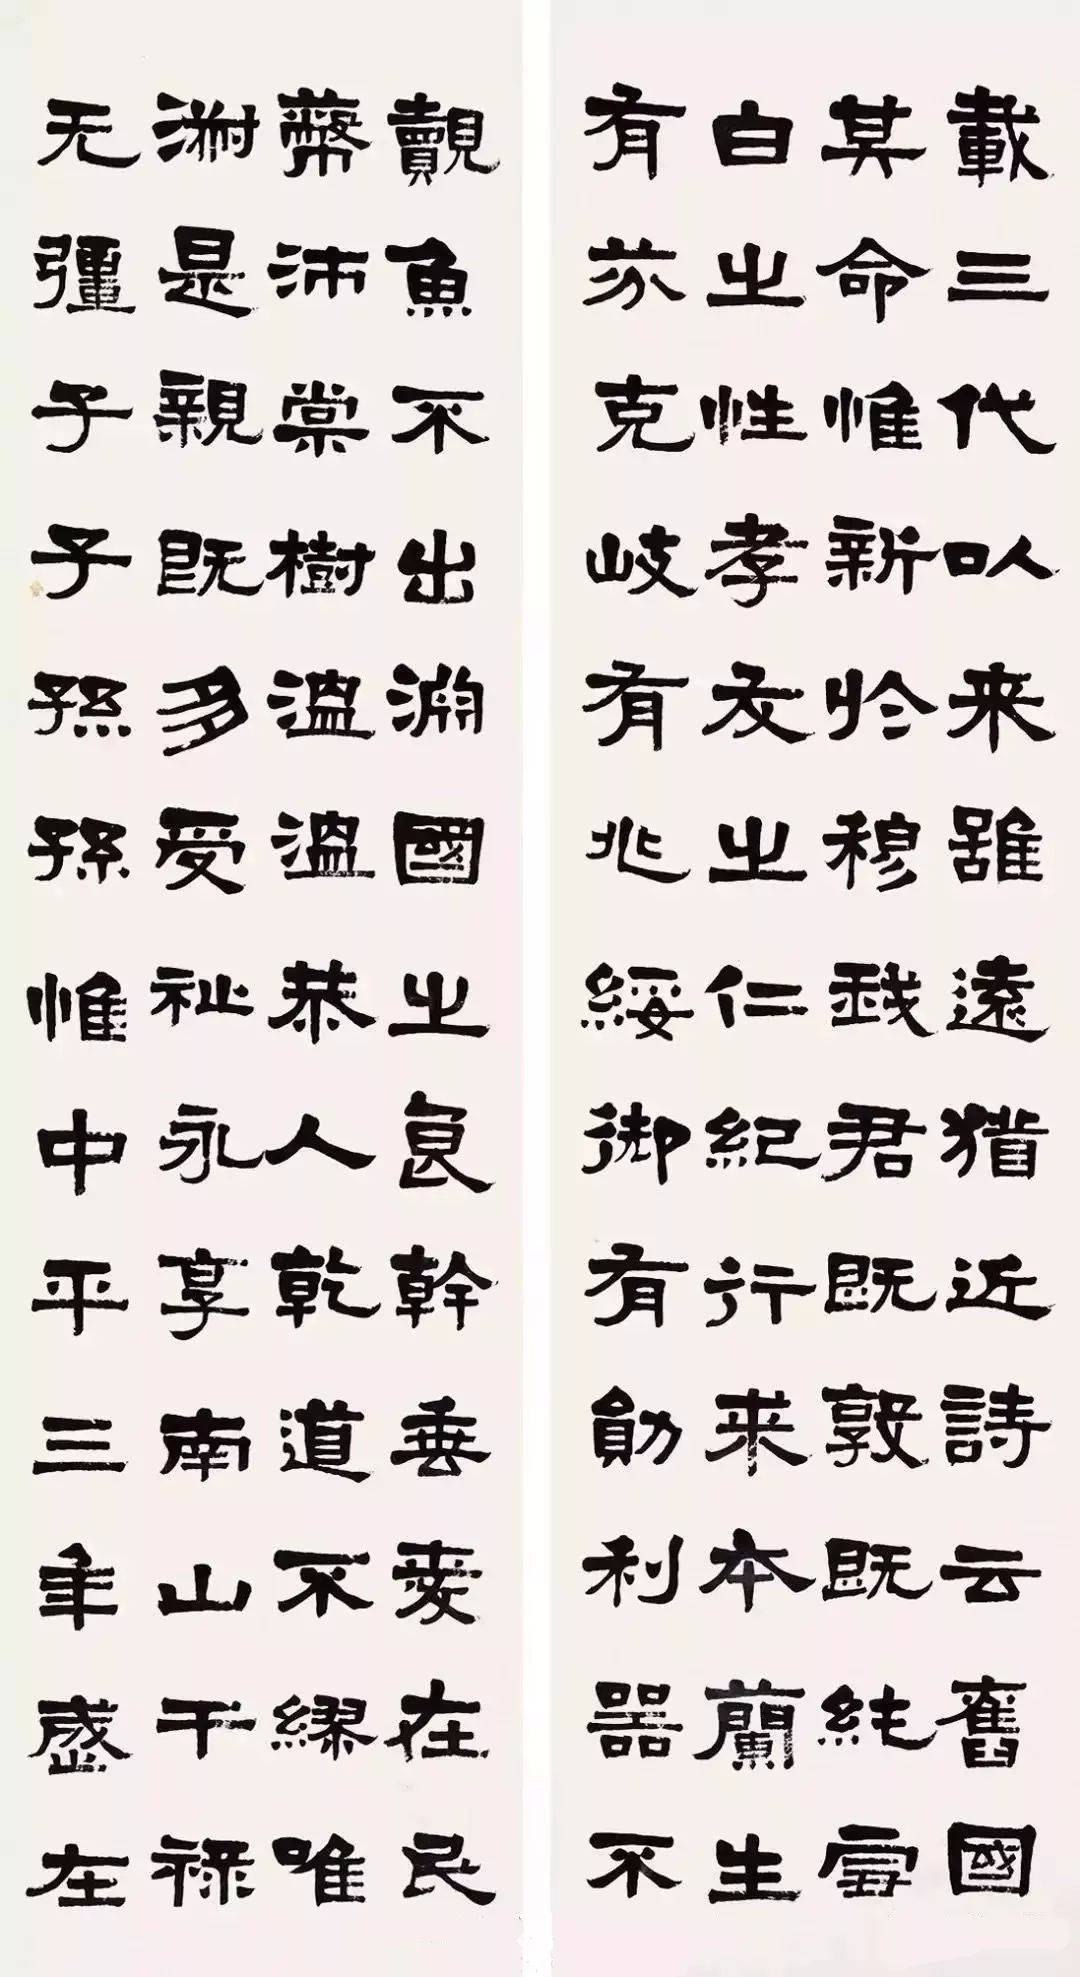 載三代以来雖遠猶近詩云舊國
其命惟新於穆我君既敦既純雪
白之性孝友之仁紀行来本蘭生
有芬克岐有兆綏御有勛利器不
覿魚不出淵國之良幹垂愛在民
蔽沛棠樹温温恭人乾道不繆唯
淑是親既多受祉永享南山干禄
无疆子子孫孫惟中平三年盛在